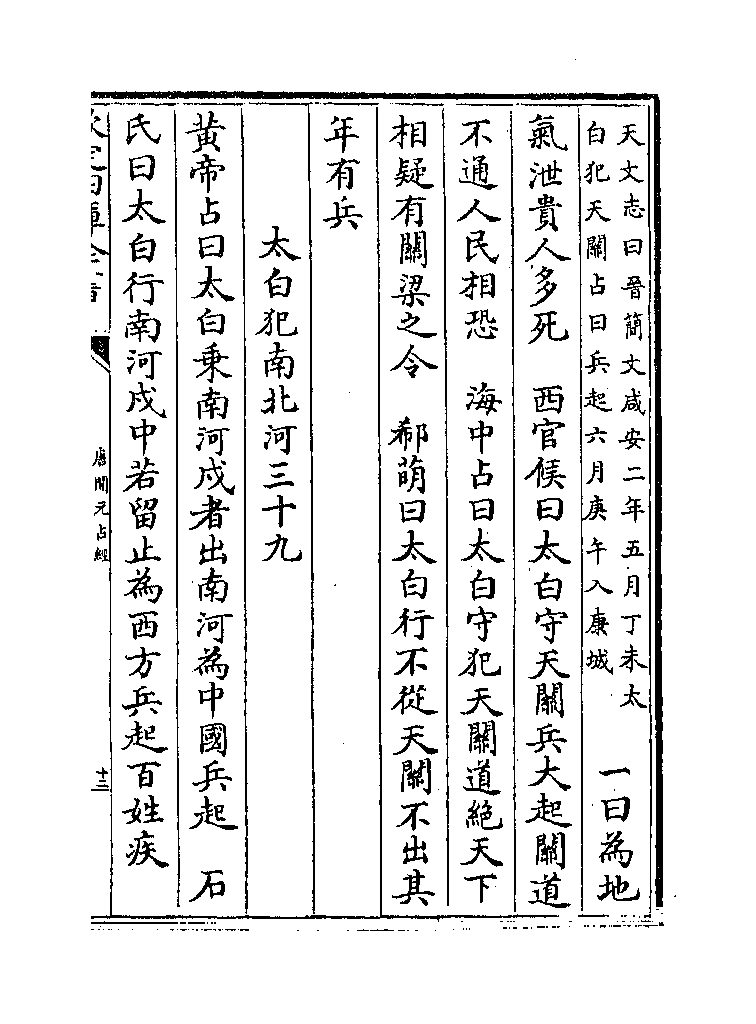 天文志曰晉簡文咸安二年五月丁未太
白犯天關占曰兵起六月庚午入康城
一曰為地
氣泄貴人多死　西官候曰太白守天關兵大起關道
不通人民相恐　海中占曰太白守犯天關道絶天下
相疑有關梁之令　郗萌曰太白行不從天關不出其
年有兵
太白犯南北河三十九
黃帝占曰太白乗南河戍者出南河為中國兵起　石
氏曰太白行南河戍中若留止為西方兵起百姓疾
唐開元占經
十三